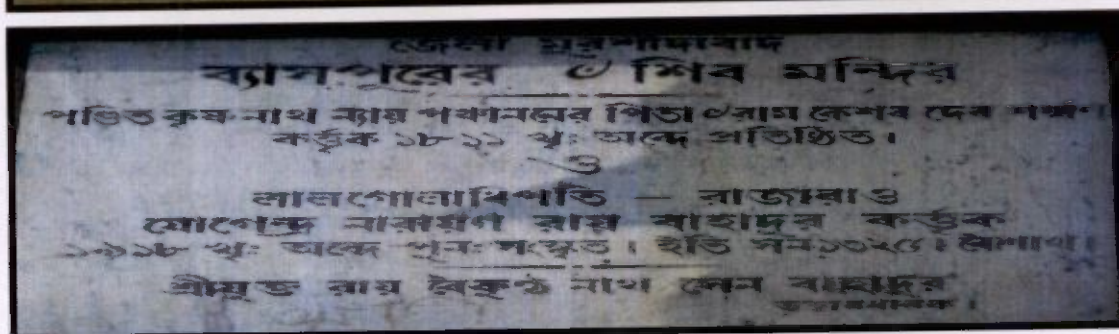 জেলা মুরশীদাবাদ
ব্যাসপুরের ৺ শিব মন্দির
পণ্ডিত কৃষ্ণ নাথ ন্যায় পঞ্চাননের পিতা ৺রাম কেশব দেব শর্ম্মণ
কর্ত্তৃক ১৮১১ খৃঃ অব্দে প্রতিষ্ঠিত।
ও
লালগোলাধিপতি — রাজারাও
যোগেন্দ্র নারায়ণ রায় বাহাদুর কর্ত্তৃক
১৯১৮ খৃঃ অব্দে পুনঃ সংস্কৃত। ইতি সন ১৩২৫। বৈশাখ।
শ্রীযুক্ত রায় বৈকুণ্ঠ নাথ সেন বাহাদুর
তত্ত্বাবধায়ক।